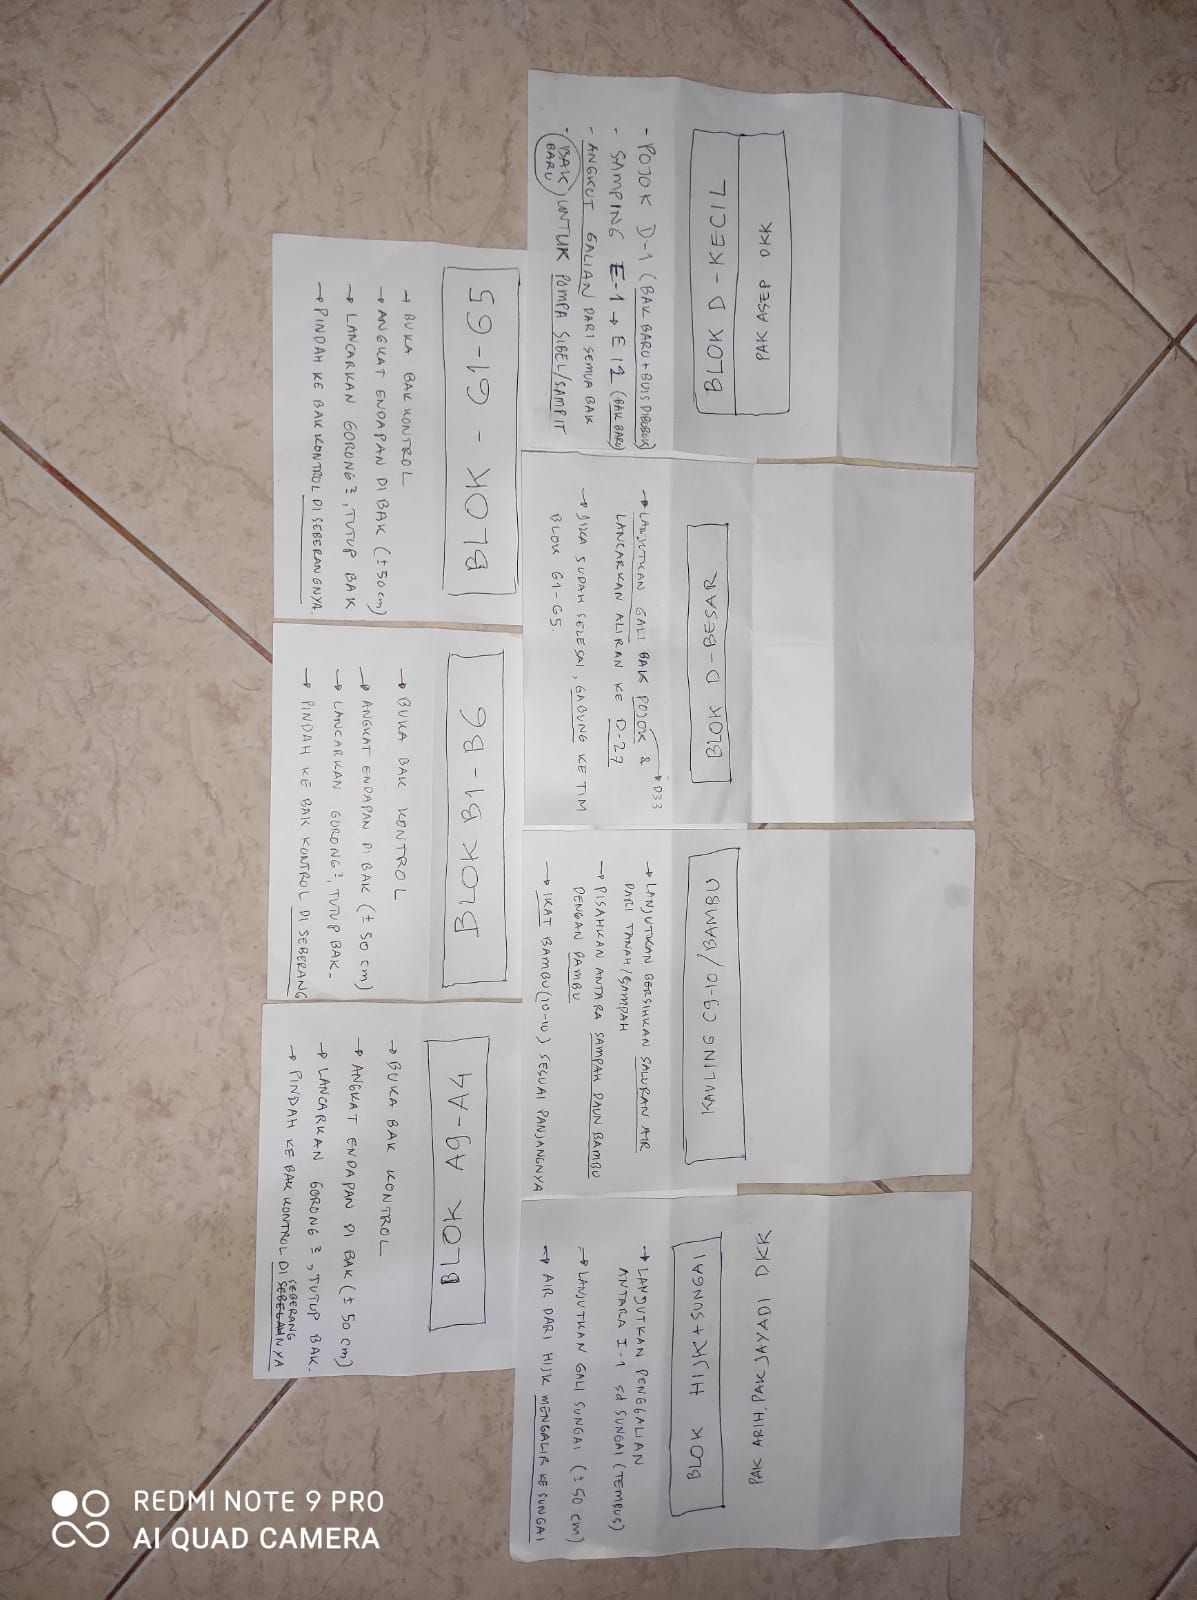 BLOK D - KECIL
PAK ASEP DKK
- POJOK D-1 (BAK BARU + BUIS DIBOBOK)
- SAMPING E-1 → E 12 (BAK BARU)
- ANGKUT GALIAN DARI SEMUA BAK
- BAK UNTUK POMPA SIBEL/SAMPIT
BARU
BLOK D-BESAR
→ LANJUTKAN GALI BAK POJOK &
D33
LANCARKAN ALIRAN KE D-27
→ JIKA SUDAH SELESAI, GABUNG KE TIM
BLOK G1-G5.
KAVLING C9-10/BAMBU
→ LANJUTKAN BERSIHKAN SALURAN AIR
DARI TANAH/SAMPAH
→ PISAHKAN ANTARA SAMPAH DAUN BAMBU
DENGAN BAMBU
→ IKAT BAMBU (10-10) SESUAI PANJANGNYA
BLOK HIJK+SUNGAI
PAK ARIH, PAK JAYADI DKK
→ LANJUTKAN PENGGALIAN
ANTARA I-1 sd SUNGAI (TEMBUS)
→ LANJUTKAN GALI SUNGAI (± 50 cm)
→ AIR DARI HIJK MENGALIR KE SUNGAI
BLOK - G1-G5
→ BUKA BAK KONTROL
→ ANGKAT ENDAPAN DI BAK (± 50 cm)
→ LANCARKAN GORONG2, TUTUP BAK
→ PINDAH KE BAK KONTROL DI SEBERANGNYA.
BLOK B1-B6
→ BUKA BAK KONTROL
→ ANGKAT ENDAPAN DI BAK (± 50 cm)
→ LANCARKAN GORONG2, TUTUP BAK.
→ PINDAH KE BAK KONTROL DI SEBERANG
BLOK A9-A4
→ BUKA BAK KONTROL
→ ANGKAT ENDAPAN DI BAK (± 50 cm)
→ LANCARKAN GORONG2, TUTUP BAK.
→ PINDAH KE BAK KONTROL DI SEBELAHNYA
SEBERANG
REDMI NOTE 9 PRO
AI QUAD CAMERA